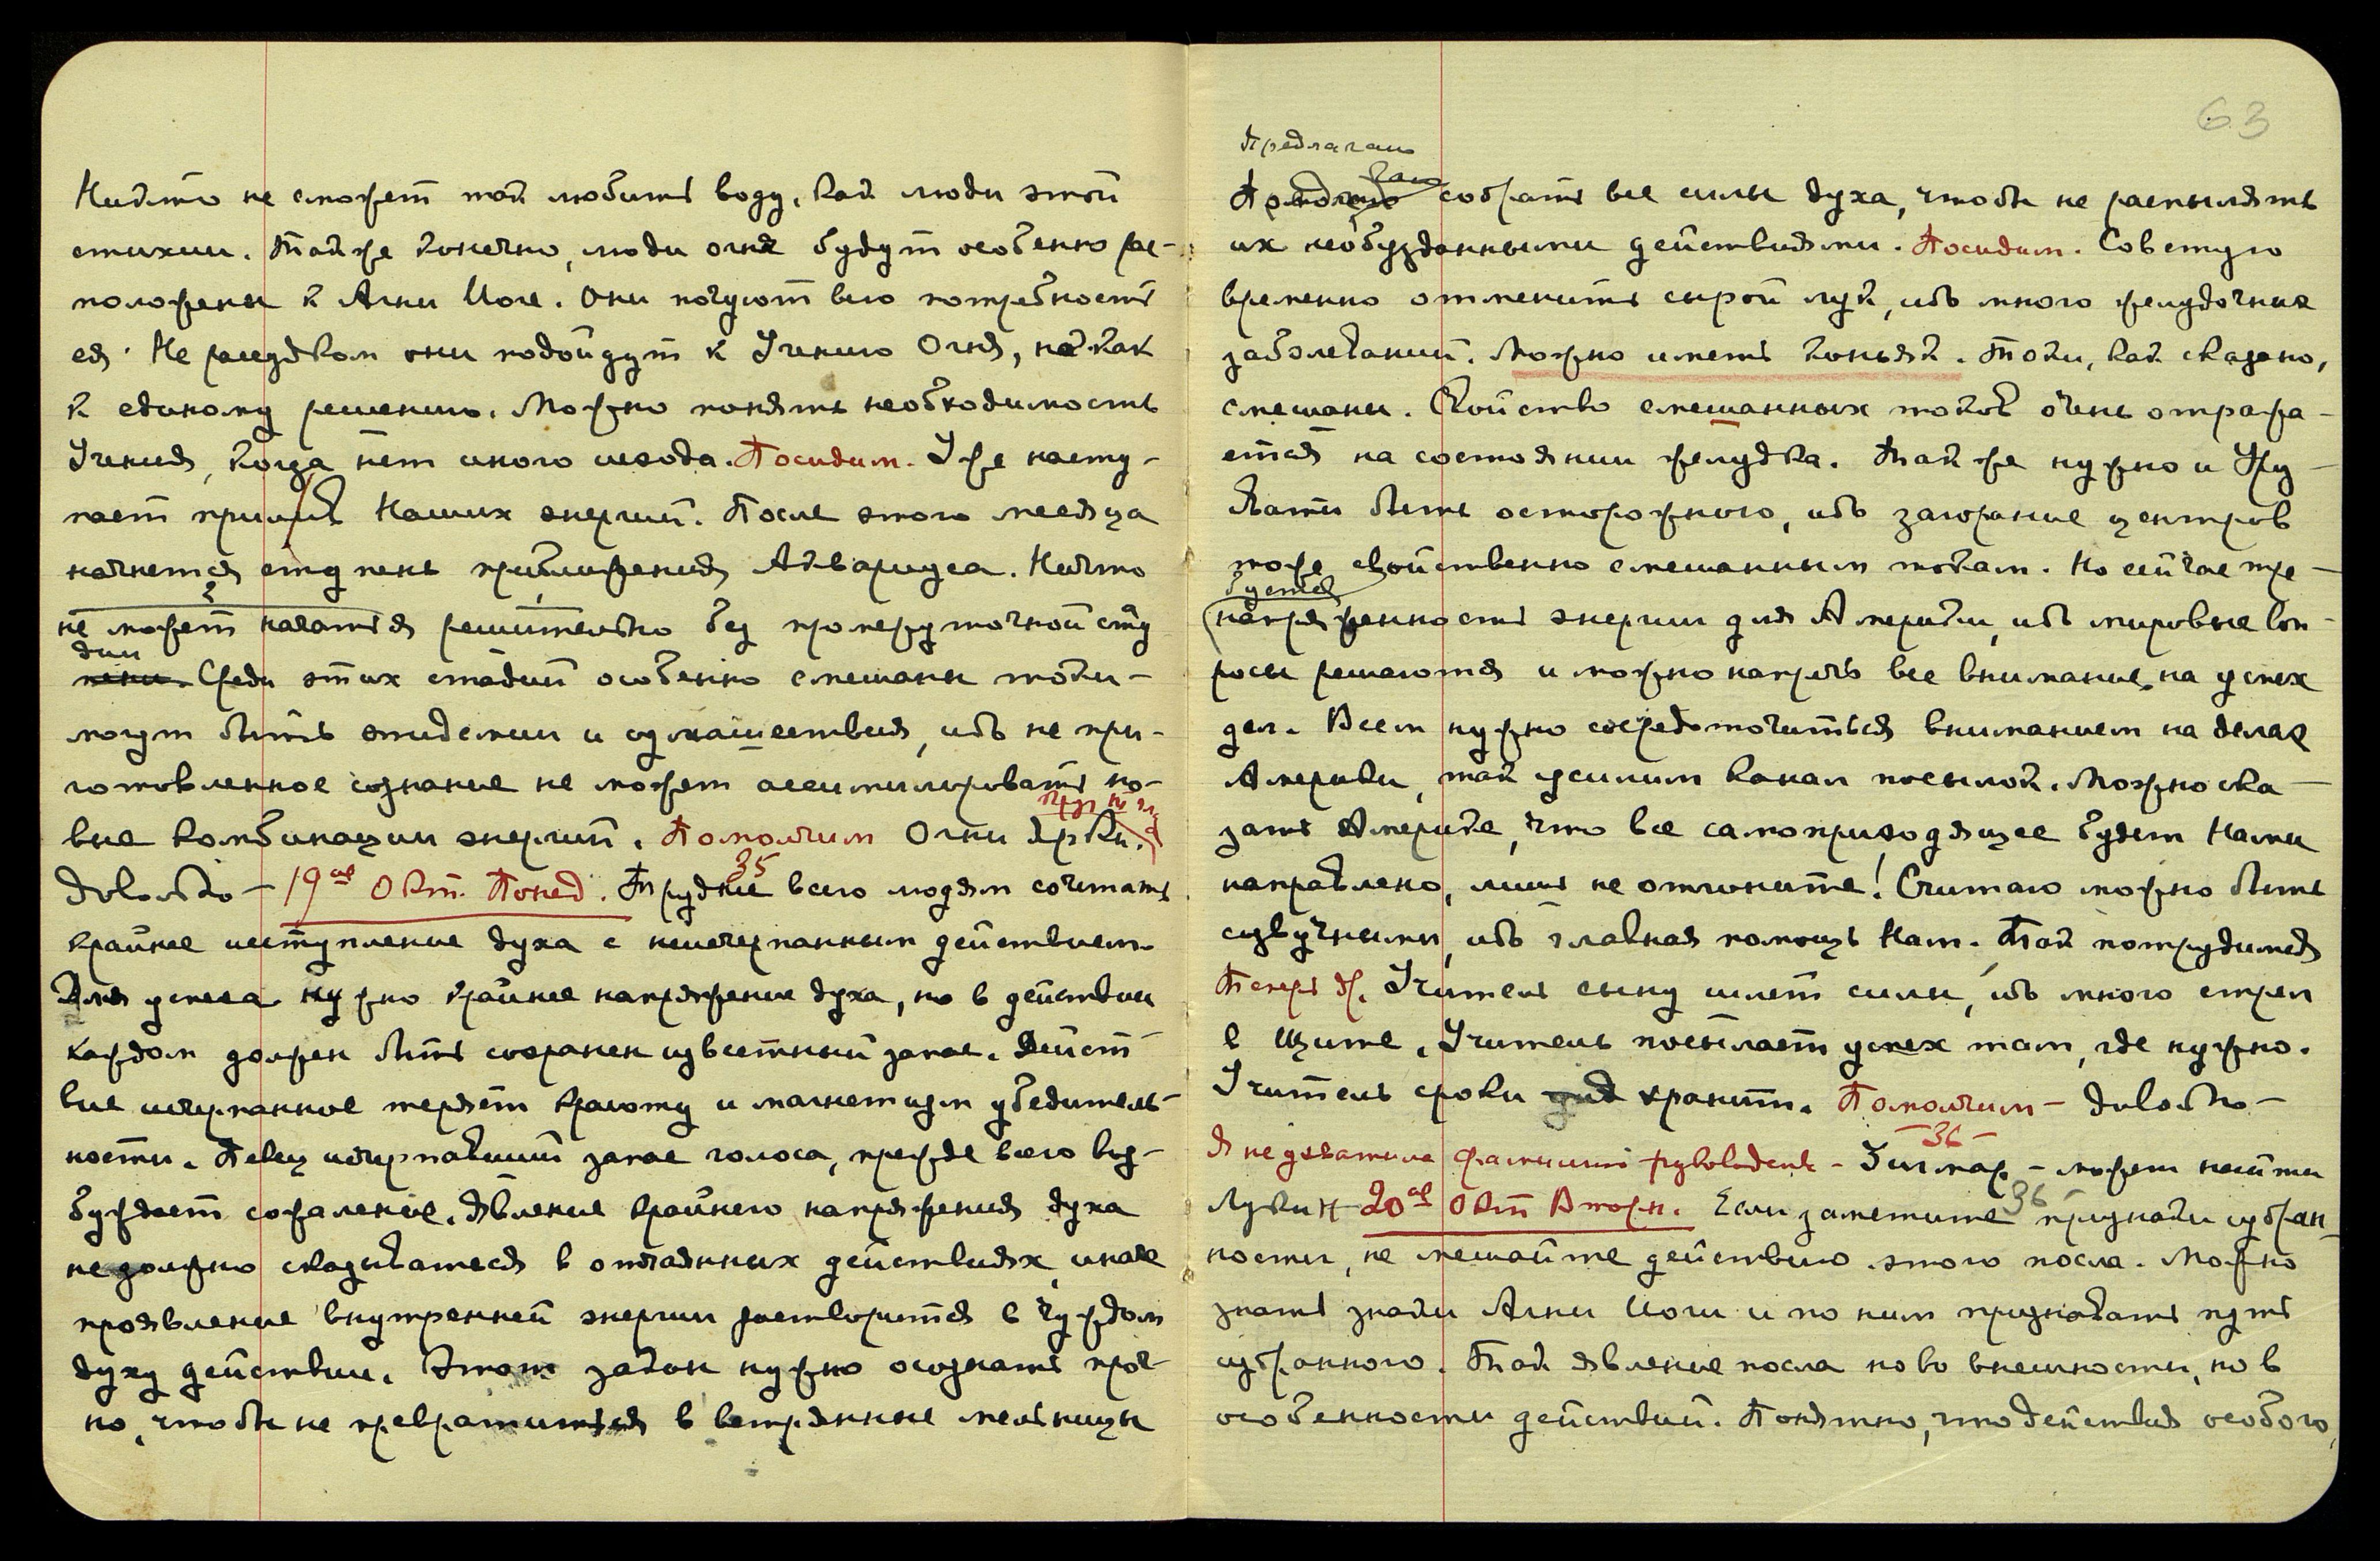 Никто не сможет так любить воду, как люди этой
стихии. Также конечно, люди огня будут особенно рас-
положены к Агни Йоге. Они почуют всю потребность
ея. Не рассудком они подойдут к Учению Огня, но как
к единому решению. Можно понять необходимость
Учения, когда нет иного исхода. Посидим. Уже насту-
пает прилив Наших энергий. После этого месяца
начнется ступень приближения Аквариуса. Ничто
не может начаться решительно без промежуточной сту
дии
пени. Среди этих стадий особенно смешаны токи –
могут быть эпидемии и сумашествия, ибо не при-
готовленное сознание не может ассимилировать но-
вые комбинации энергий. Помолчим Огни ярки.
Довольно – 19ое Окт. Понед. 35 Труднее всего людям сочетать
крайнее исступление духа с неисчерпанным действием.
Для успеха нужно крайнее напряжение духа, но в действии
каждом должен быть сохранен известный запас. Дейст
вие исчерпанное теряет красоту и магнетизм убедитель-
ности. Певец исчерпавший запас голоса, прежде всего воз-
буждает сожаление. Явление крайнего напряжения духа
не должно сказываться в отчаянных действиях, иначе
проявление внутренней энергии растворится в чуждом
духу действии. Этот закон нужно осознать проч-
но, чтобы не превратиться в ветрянные мельницы
63
Предлагаю
собрать все силы духа, чтобы не распылять
их необузданными действиями. Посидим. Советую
временно отменить сырой лук, ибо много желудочных
заболеваний. Можно иметь коньяк. Токи, как сказано,
смешаны. Свойство смешанных токов очень отража-
ется на состоянии желудка. Так же нужно и Уру
свати быть осторожною, ибо загорание центров
тоже свойственно смешанным токам. Но сейчас тре-
буется
напряженность энергии для Америки, ибо мировые воп-
росы решаются и можно напречь все внимание на успех
дел. Всем нужно сосредоточиться вниманием на делах
Америки, так усилим канал посылок. Можно ска-
зать Америке, что все самоприходящее будет Нами
направлено, лишь не отгоните! Считаю можно быть
созвучными, ибо главная помощь Нам. Так потрудимся
Теперь др. Учитель сыну шлет силы, ибо много стрел
в Щите. Учитель посылает успех там, где нужно.
Учитель сроки хранит. Помолчим – довольно –
Я не ухватила фамилии – 36 – может найти
20ое Окт Вторн. 36 Если заметите признаки избран
ности, не мешайте действию этого посла. Можно
знать знаки Агни Йоги и по ним признавать путь
избранного. Так явление посла не во внешности, но в
особенности действий. Понятно, что действия особого,